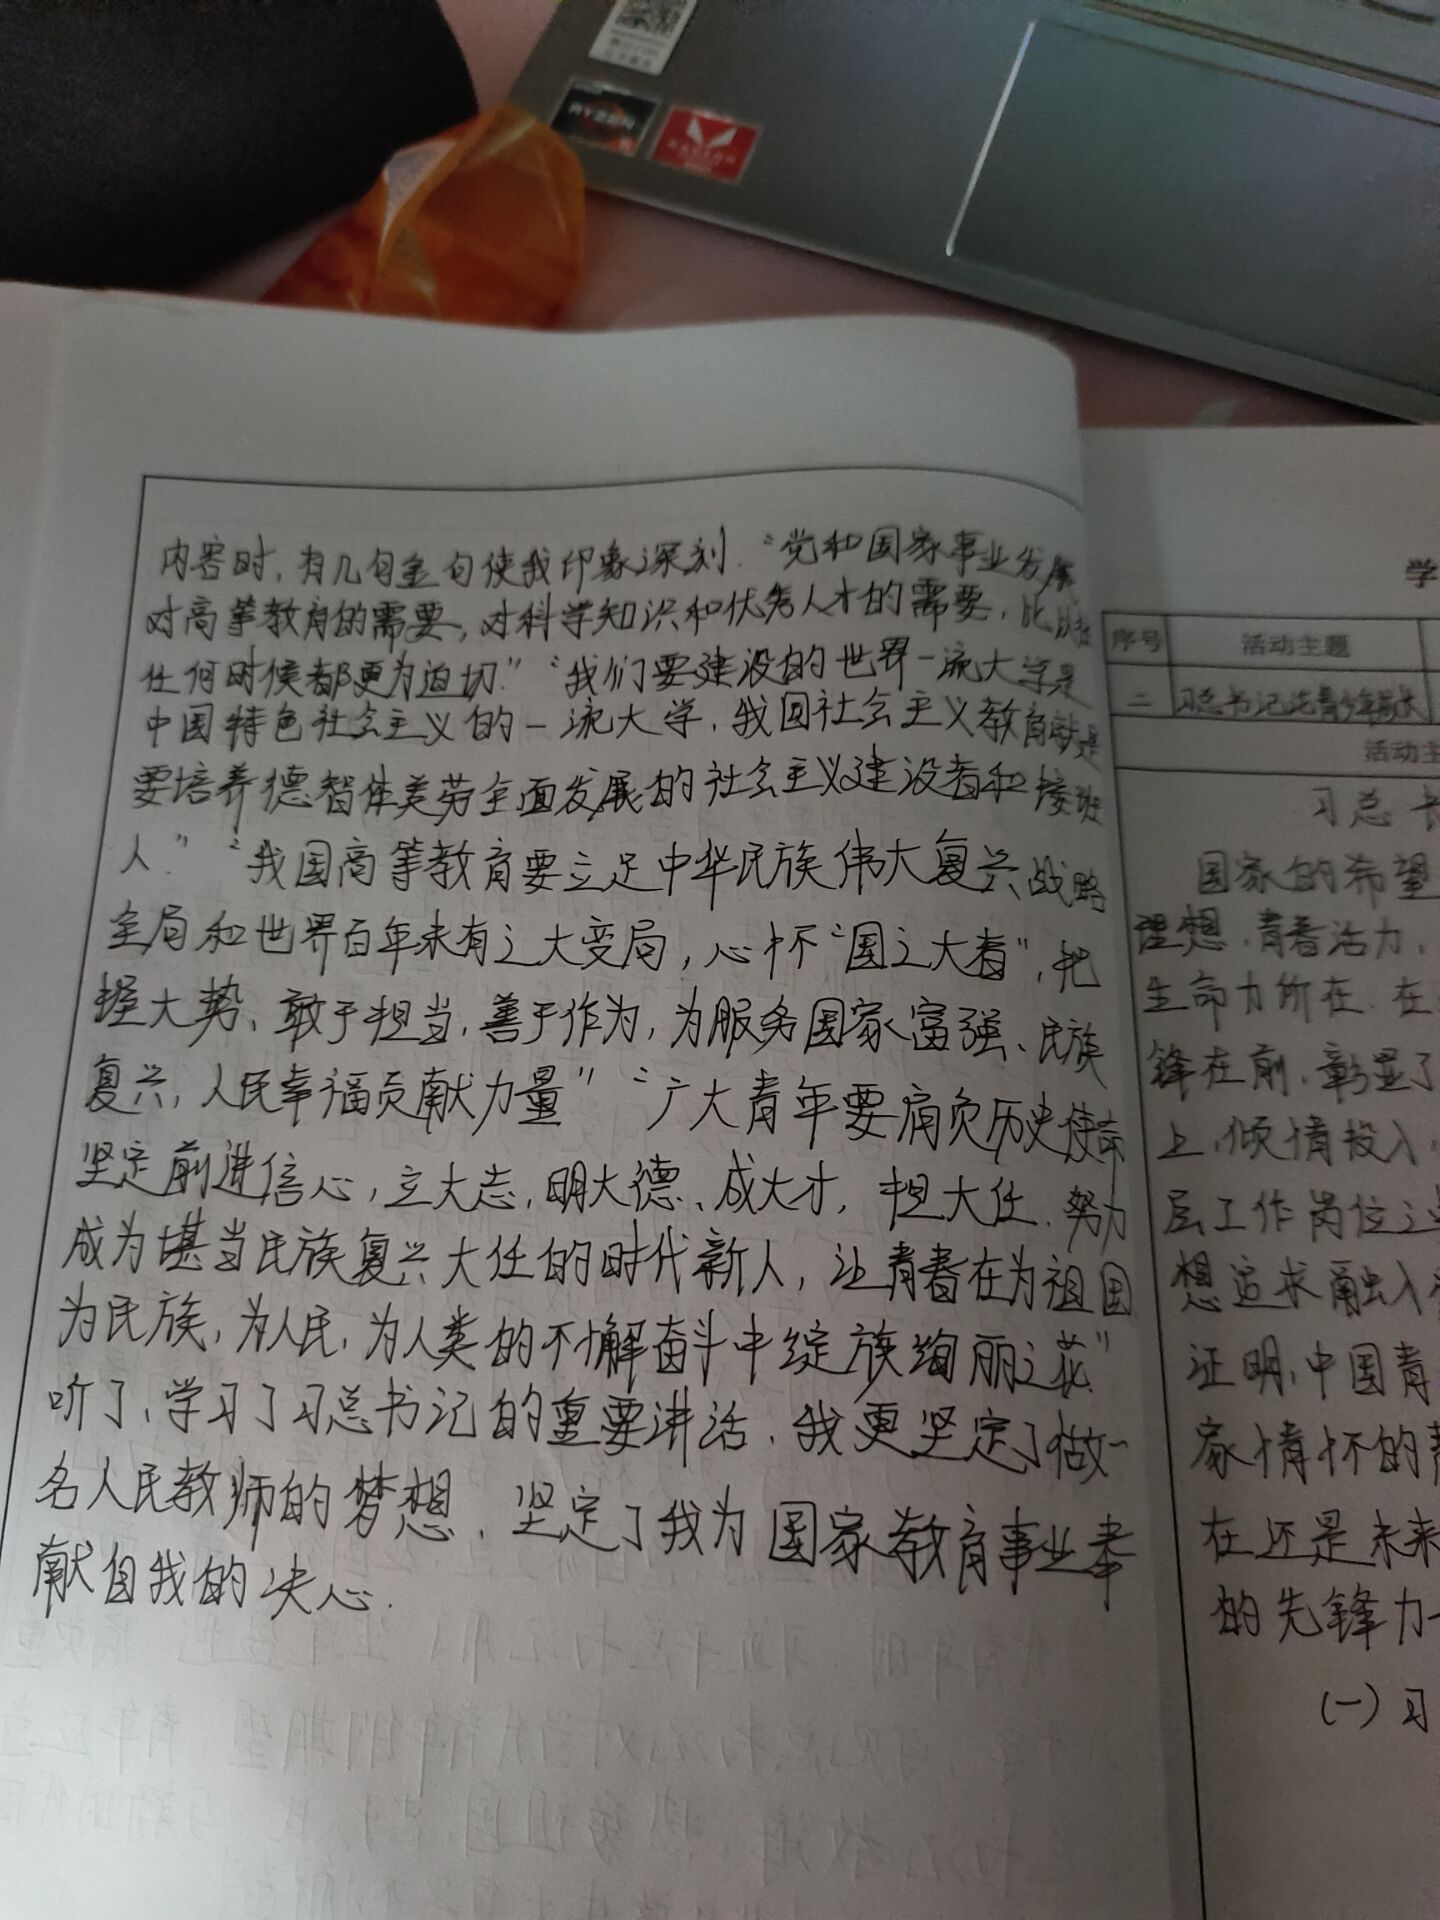 RYZEN
RADEON
内容时，有几句金句使我印象深刻.“党和国家事业发展
对高等教育的需要，对科学知识和优秀人才的需要，比以往
任何时候都更为迫切.”“我们要建设的世界一流大学是
中国特色社会主义的一流大学，我国社会主义教育就是
要培养德智体美劳全面发展的社会主义建设者和接班
人.”“我国高等教育要立足中华民族伟大复兴战略
全局和世界百年未有之大变局，心怀“国之大者”，把
握大势、敢于担当，善于作为，为服务国家富强、民族
复兴，人民幸福贡献力量”“广大青年要肩负历史使命
坚定前进信心，立大志，明大德、成大才，担大任.努力
成为堪当民族复兴大任的时代新人，让青春在为祖国
为民族，为人民，为人类的不懈奋斗中绽族绚丽之花.”
听了、学习了习总书记的重要讲话，我更坚定了做一
名人民教师的梦想，坚定了我为国家教育事业奉
献自我的决心.
学
序号 活动主题
二 习总书记论青少年成长
活动主
习总书
国家的希望
理想，青春活力，
生命力所在.在
锋在前，彰显了
上，倾情投入，
层工作岗位之
想追求融入
证明，中国青
家情怀的
在还是未来
的先锋力
(一)习